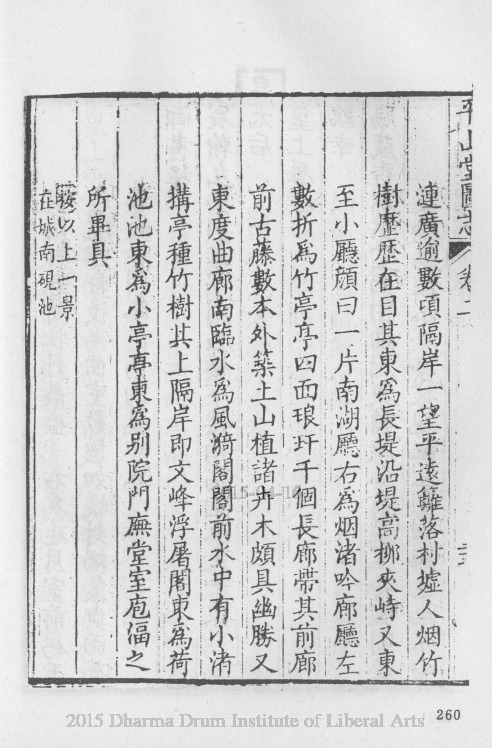 平山堂圖志 卷二
漣廣逾數頃隔岸一望平遠籬落村墟人烟竹
樹歷歷在目其東為長堤沿堤高柳夾峙又東
至小廳顏曰一片南湖廳右為烟渚吟廊廳左
數折為竹亭亭四面琅玕千個長廊帶其前廊
前古藤數本外築土山植諸卉木頗具幽勝又
東度曲廊南臨水為風漪閣閣前水中有小渚
搆亭種竹樹其上隔岸即文峰浮屠閣東為荷
池池東為小亭亭東為别院門廡堂室庖湢之
所畢具
按以上一景
在城南硯池
260
2015 Dharma Drum Institute of Liberal Arts